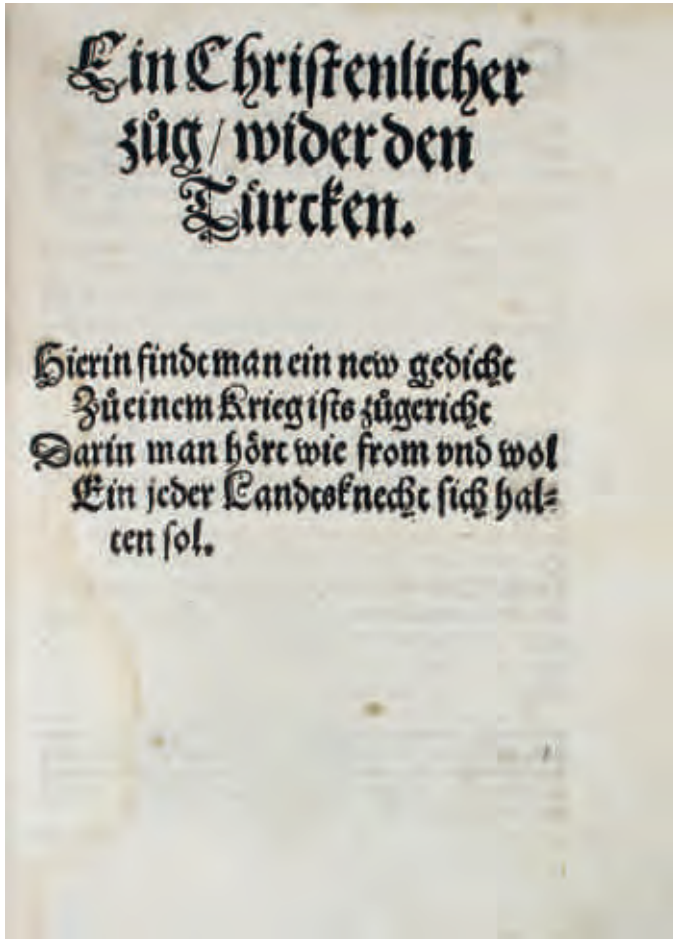 Ein Christenlicher
zůg / wider den
Türcken.
Hierin findt man ein new gedicht
Zů einem Krieg ists zůgericht
Darin man hört wie from vnd wol
Ein jeder Landtsknecht sich hal⸗
ten sol.